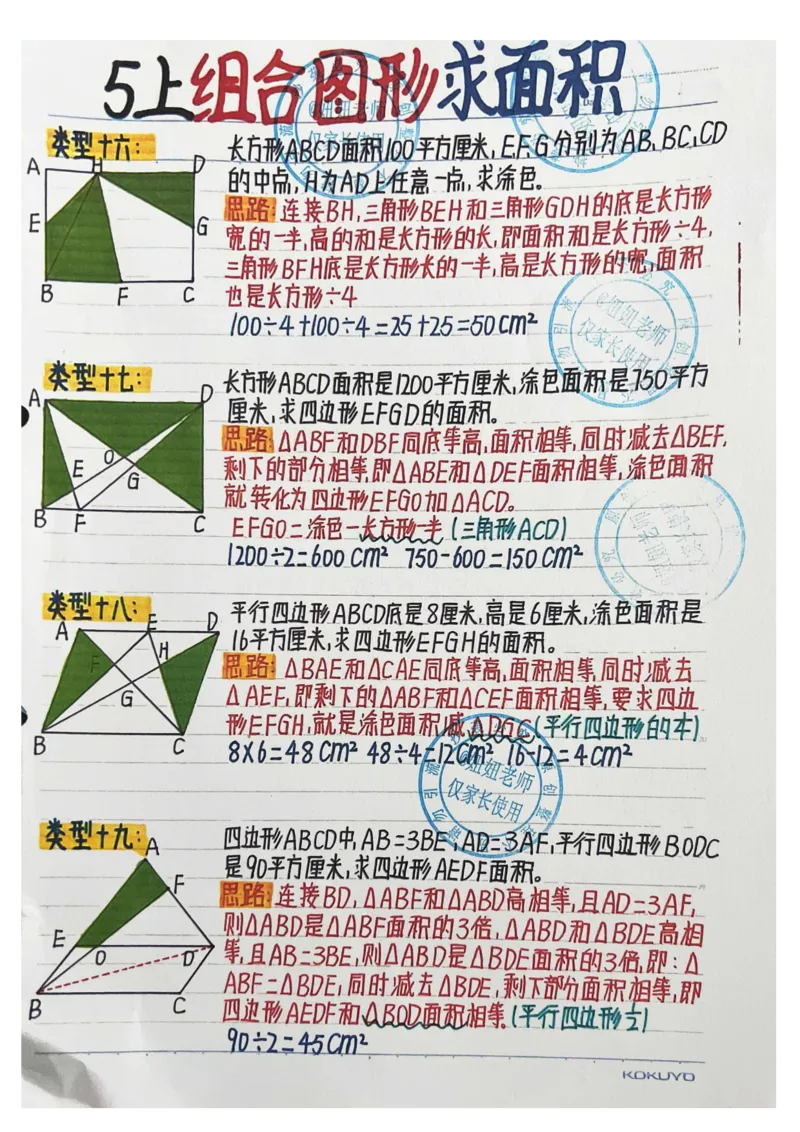 5上组合图形求面积
类型十六:
长方形ABCD面积100平方厘米,E.F.G分别为AB、BC、CD
的中点,H为AD上任意一点,求涂色。
思路:连接BH,三角形BEH和三角形GDH的底是长方形
宽的一半,高的和是长方形的长,即面积和是长方形÷4,
三角形BFH底是长方形长的一半,高是长方形的宽,面积
也是长方形÷4
100÷4+100÷4=25+25=50cm²
A
H
D
E
G
B
F
C
类型十七:
长方形ABCD面积是1200平方厘米,涂色面积是750平方
厘米,求四边形EFGD的面积。
思路:△ABF和DBF同底等高,面积相等,同时减去△BEF,
剩下的部分相等,即△ABE和△DEF面积相等,涂色面积
就转化为四边形EFGO加△ACD。
EFGO=涂色-长方形一半(三角形ACD)
1200÷2=600cm² 750-600=150cm²
A
D
O
E
G
B
F
C
类型十八:
平行四边形ABCD底是8厘米,高是6厘米,涂色面积是
16平方厘米,求四边形EFGH的面积。
思路:△BAE和△CAE同底等高,面积相等,同时减去
△AEF,即剩下的△ABF和△CEF面积相等,要求四边
形EFGH,就是涂色面积减△DGC(平行四边形的¼)
8×6=48cm² 48÷4=12cm² 16-12=4cm²
A
E
D
F
H
G
B
C
类型十九:
四边形ABCD中,AB=3BE,AD=3AF,平行四边形BODC
是90平方厘米,求四边形AEDF面积。
思路:连接BD,△ABF和△ABD高相等,且AD=3AF,
则△ABD是△ABF面积的3倍,△ABD和△BDE高相
等,且AB=3BE,则△ABD是△BDE面积的3倍,即:△
ABF=△BDE,同时减去△BDE,剩下部分面积相等,即
四边形AEDF和△BOD面积相等.(平行四边形½)
90÷2=45cm²
A
F
E
O
D
B
C
@妞妞老师
仅家长使用
KOKUYO